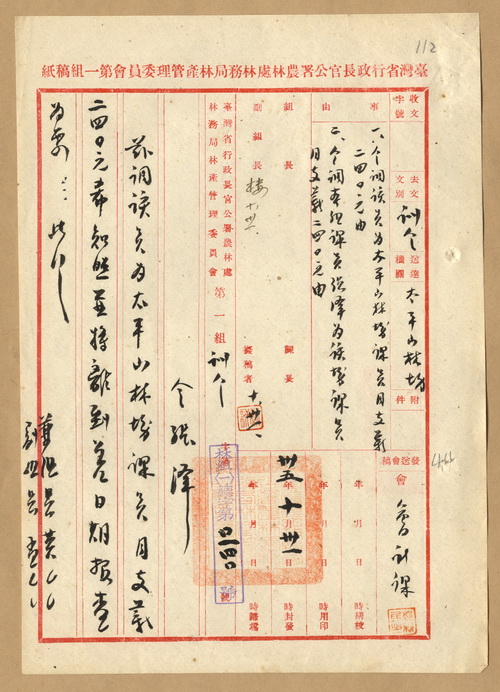 112
臺灣省行政長官公署農林處林務局林產管理委員會第一組稿紙
收文 字 號
去文 文別 訓令
送達機關 太平山林場
附件
事由
一、令調該員為太平山林場課員月支薪
二四〇元由
二、令調本組課員張澤為該場課員
月支薪二四〇元由
發送會稿 會
會計課
組長
副組長 樓 十、卅一
課長
擬稿者 十、卅一、
年 月 日 時核稿
年 月 日 時用印
年 月 日 時封發
年 月 日 時歸檔
卅五 十 卅一
臺灣省行政長官公署農林處林務局林產管理委員會 第一組 訓令
字第 〇二四〇 號
令張澤
茲調該員為太平山林場課員月支薪
二四〇元希知照並將離到差日期報查
為要
此令